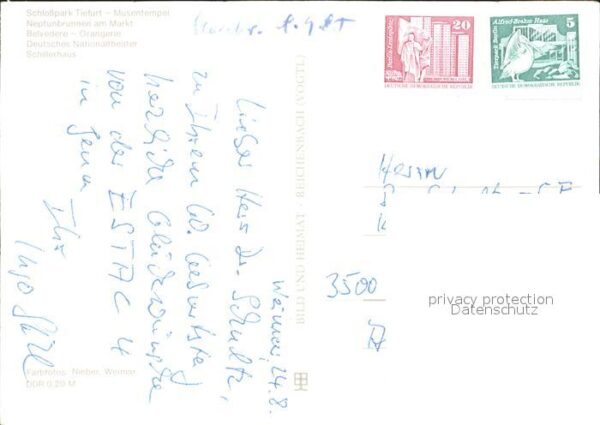 Schloßpark Tiefurt - Musentempel
Neptunbrunnen am Markt
Belvedere - Orangerie
Deutsches Nationaltheater
Schillerhaus
Weimar, 24.8.
Lieber Herr Dr. Schultz,
zu Ihrem 60. Geburtstag
herzliche Glückwünsche
von der ESTAC 4
in Jena
Ihr
Ingo
Farbfotos: Nieber, Weimar
DDR 0,20 M
BILD UND HEIMAT · REICHENBACH (VOGTL)
20
Berlin-Leninplatz
DEUTSCHE DEMOKRATISCHE REPUBLIK
Alfred-Brehm-Haus
5
Tierpark Berlin
DEUTSCHE DEMOKRATISCHE REPUBLIK
Herrn
3500
privacy protection
Datenschutz